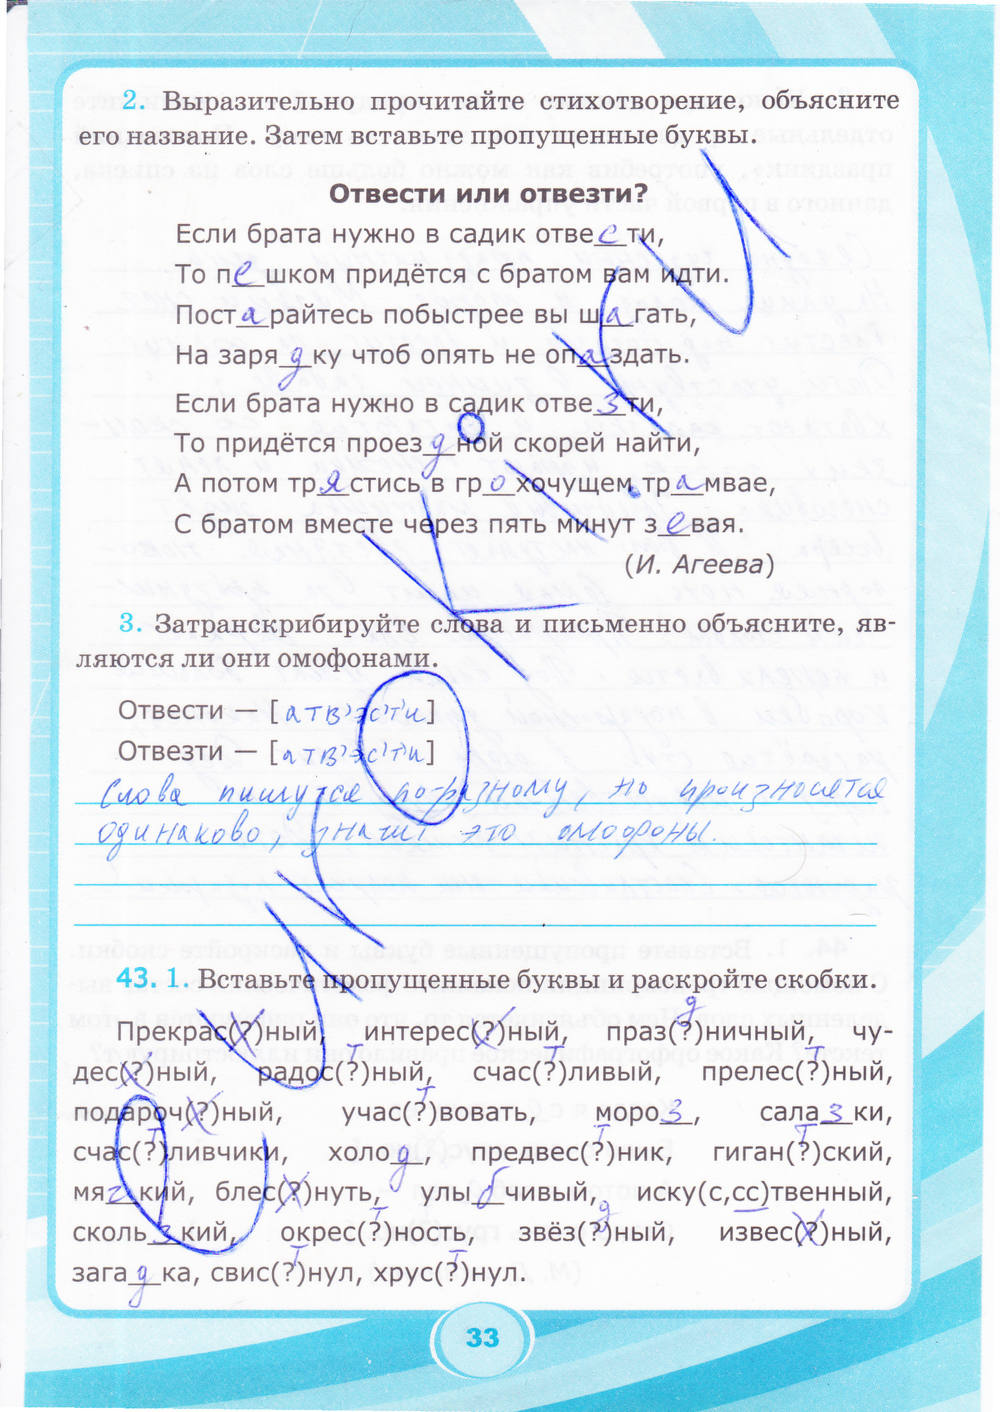 2. Выразительно прочитайте стихотворение, объясните
его название. Затем вставьте пропущенные буквы.
Отвести или отвезти?
Если брата нужно в садик отвести,
То пешком придётся с братом вам идти.
Постарайтесь побыстрее вы шагать,
На зарядку чтоб опять не опаздать.
Если брата нужно в садик отвезти,
То придётся проездной скорей найти,
А потом трястись в грохочущем трамвае,
С братом вместе через пять минут зевая.
(И. Агеева)
3. Затранскрибируйте слова и письменно объясните, яв-
ляются ли они омофонами.
Отвести — [атв'эс'т'и]
Отвезти — [атв'эс'т'и]
Слова пишутся по-разному, но произносятся
одинаково, значит это омофоны.
43. 1. Вставьте пропущенные буквы и раскройте скобки.
Прекрас(?)ный, интерес(?)ный, праз(?)ничный, чу-
дес(?)ный, радос(?)ный, счас(?)ливый, прелес(?)ный,
подароч(?)ный, учас(?)вовать, мороз, салазки,
счас(?)ливчики, холод, предвес(?)ник, гиган(?)ский,
мягкий, блес(?)нуть, улыбчивый, иску(с,сс)твенный,
скользкий, окрес(?)ность, звёз(?)ный, извес(?)ный,
загадка, свис(?)нул, хрус(?)нул.
33